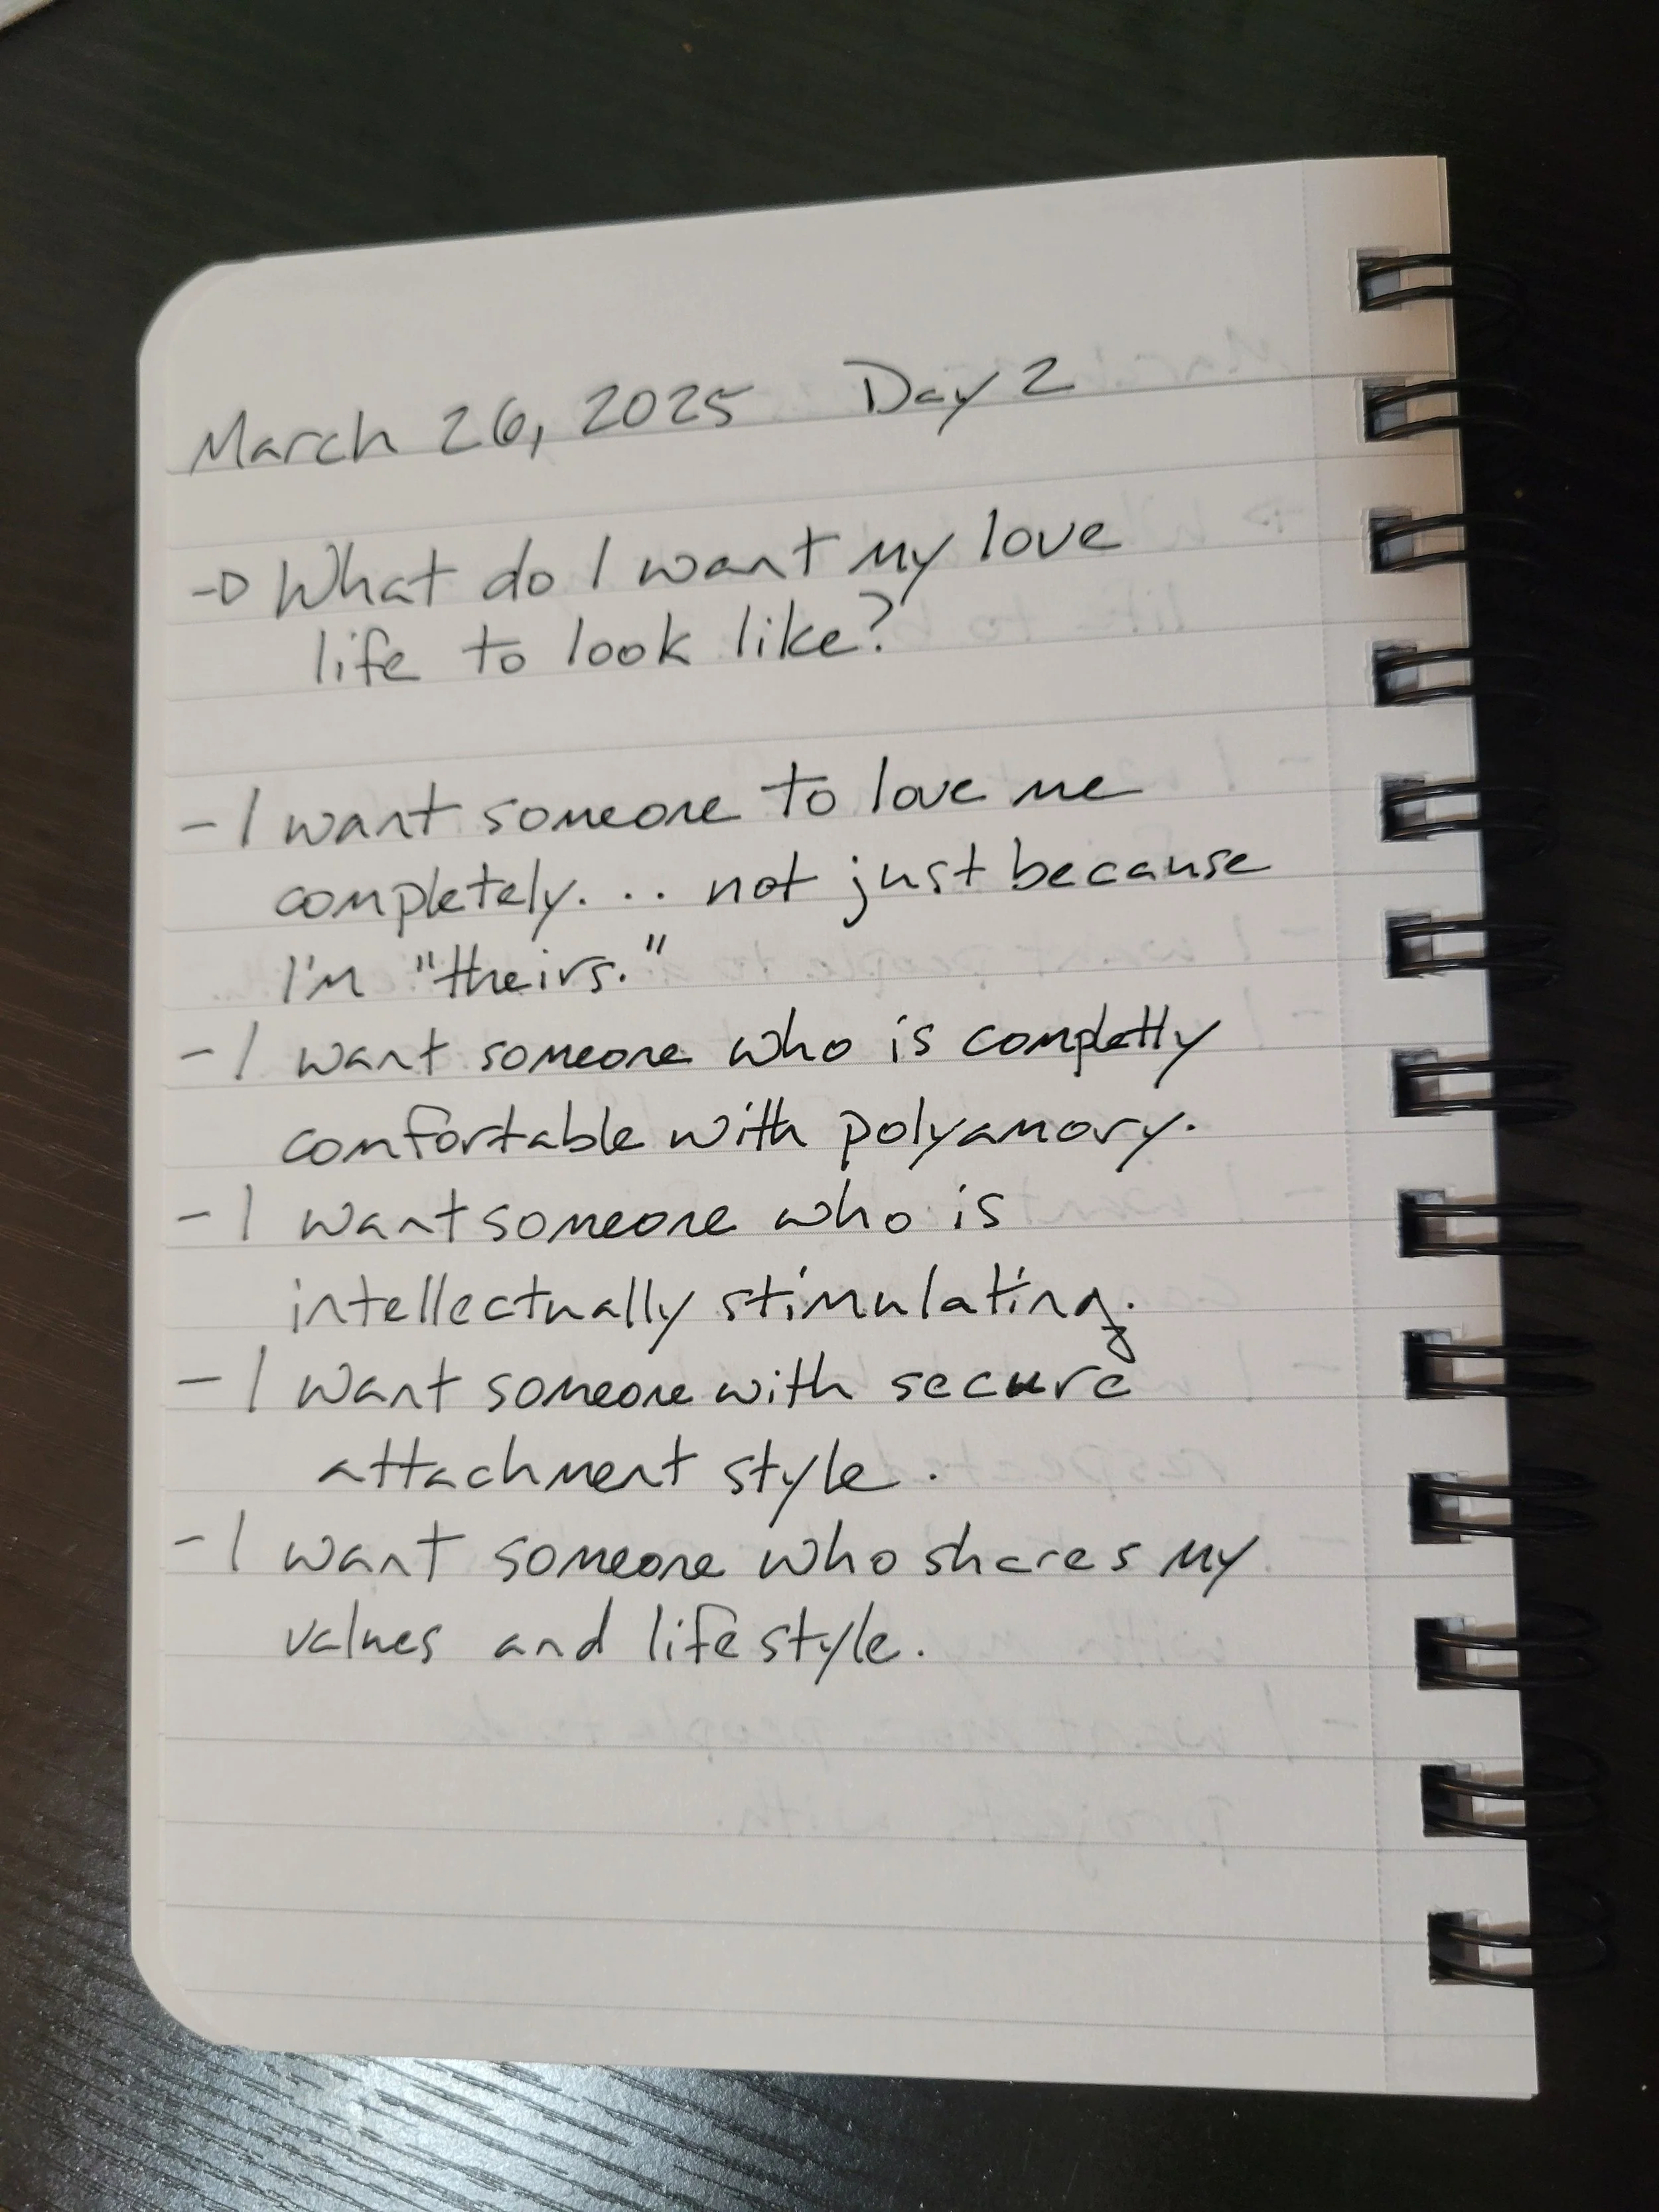 March 26, 2025 Day 2
→ What do I want my love
life to look like?
- I want someone to love me
completely... not just because
I'm "theirs."
- I want someone who is completly
comfortable with polyamory.
- I want someone who is
intellectually stimulating.
- I want someone with secure
attachment style.
- I want someone who shares my
values and lifestyle.